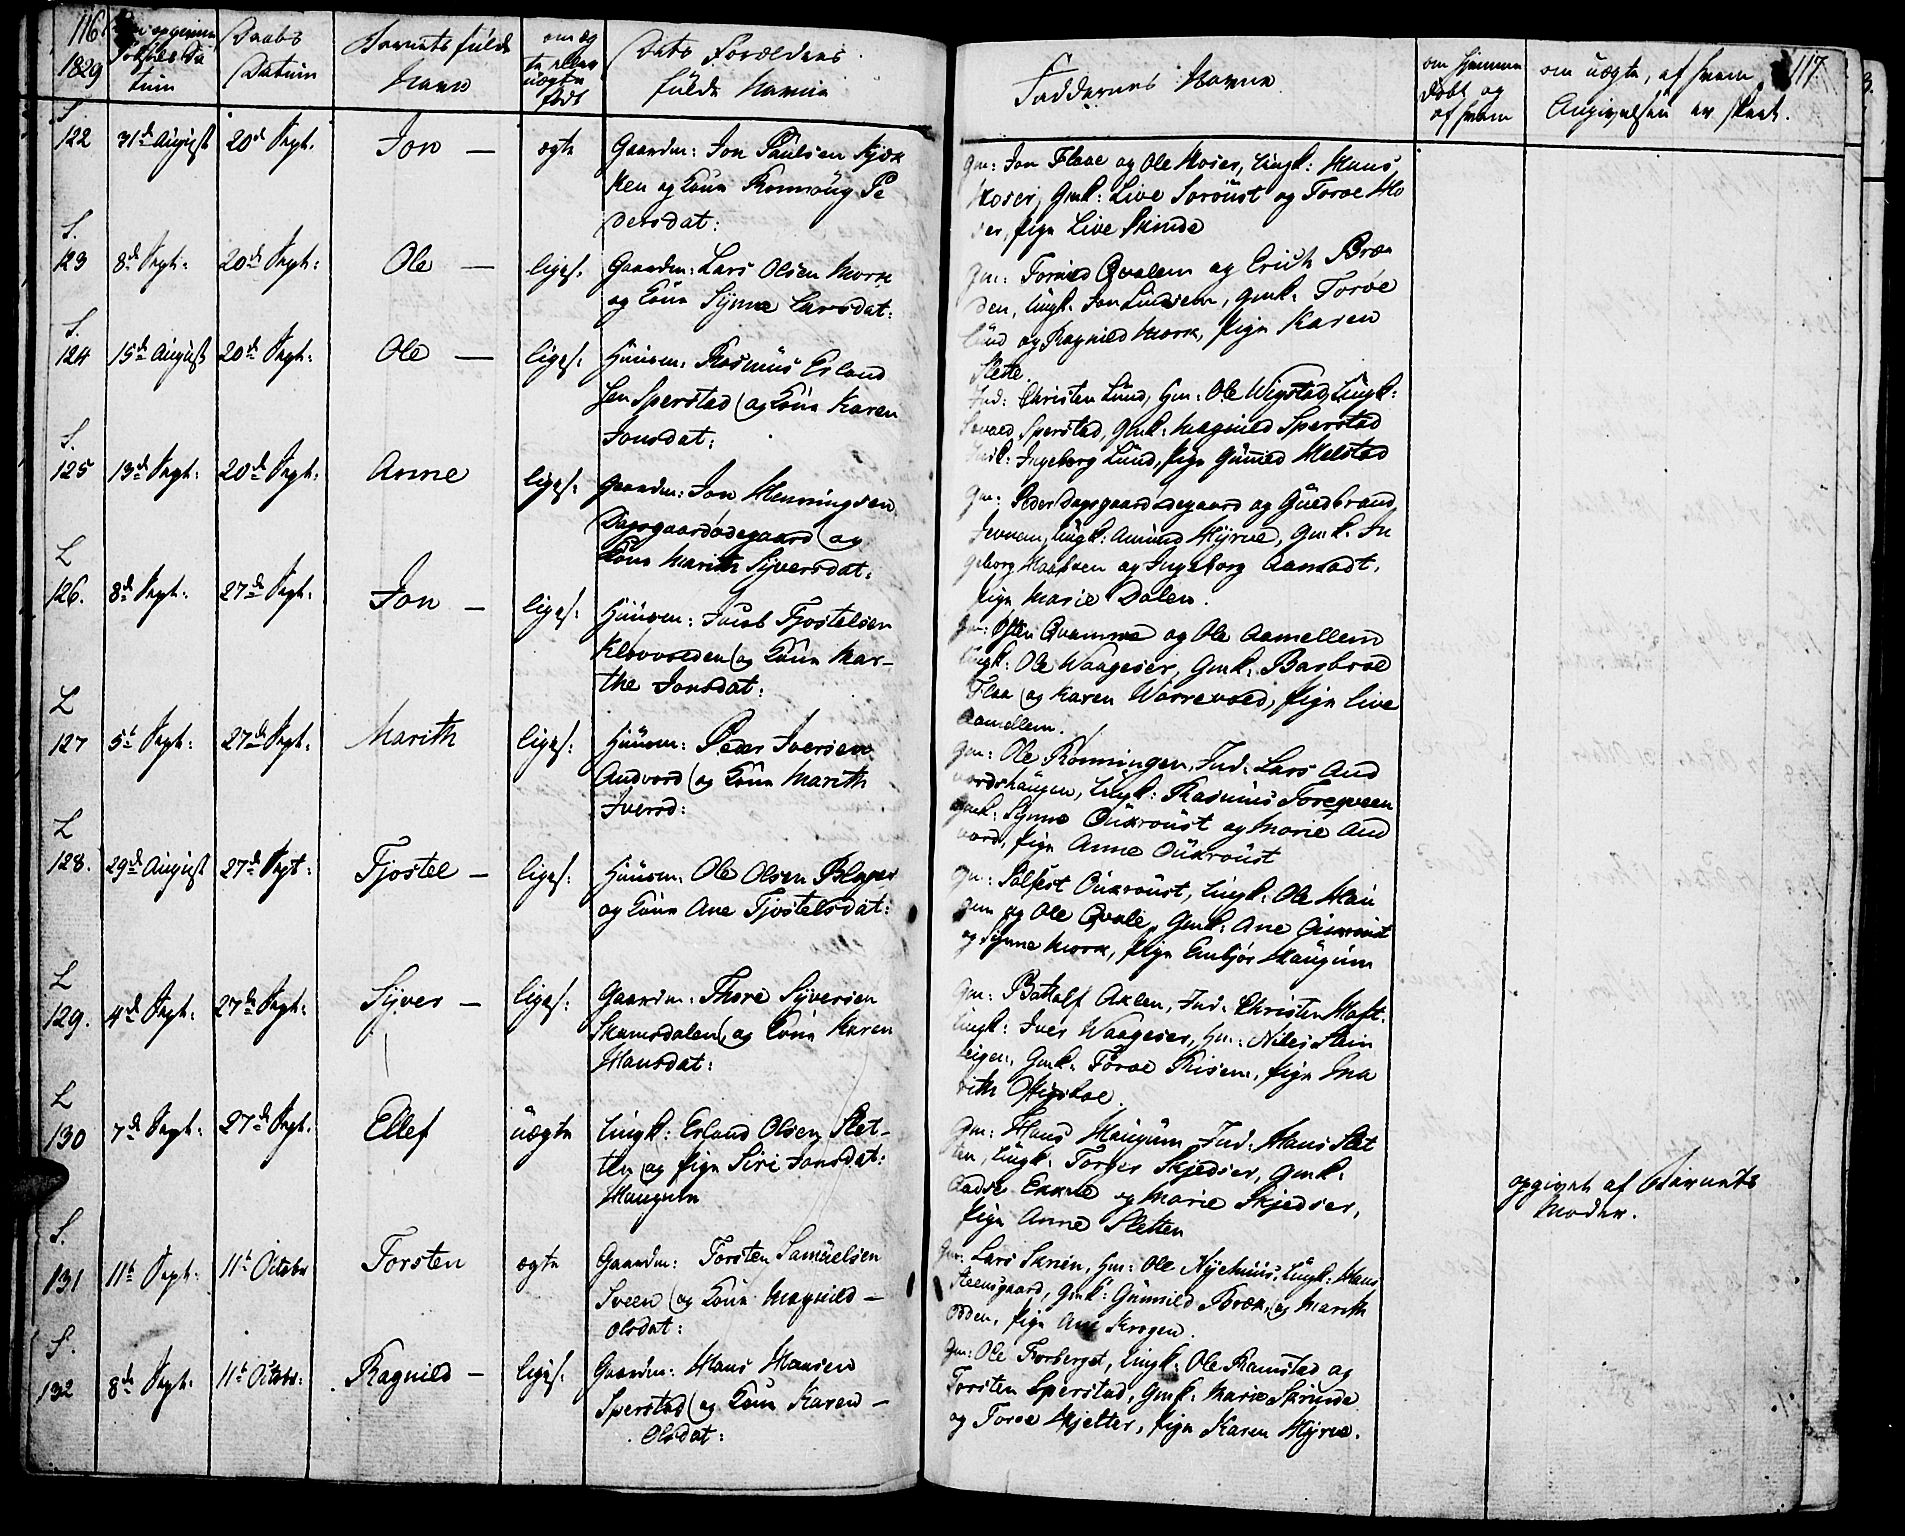 116
1829
Fødsels Da
tum
Daabs
Datum
Barnets fulde
Navn
om æg
te eller
uægte
født
Dets Forældres
fulde Navne
Faddernes Navne
om hjemme
døbt og
af hvem
om uægte, af hvem
Angivelsen er skeet.
117
S.
122 31te August 20de Sept. Jon — ægte
Gaardm: Jon Paulsen Kjøk
ken og Kone Ronnoug Pe
dersdat:
Gm: Jon Flaae og Ole Moser, Ungk: Hans
Moser, Gmk: Live Sorøust og Toroe Mo
ser, Pige Live Skinde
S.
123 8de Sept: 20de Sept: Ole — liges.
Gaardm: Lars Olsen Mork
og Kone Synnø Larsdat:
Gm: Tormod Qvalem og Erich Bræ
den, Ungk. Jon Lundsem, Gmk: Toroe
Lund og Ragnild Mork, Pige Karen
Slette
S.
124 15de August 20de Sept: Ole — ligef:
Huusm: Rasmus Erland
sen Sperstad og Kone Karen
Jonsdat:
Ind: Christen Lund, Gm: Ole Wigstad, Ungk:
Sperstad, Gmk: Magnild Sperstad
Indk: Ingeborg Lund, Pige Gunned Melstad
S.
125 13de Sept: 20de Sept: Anne ligef:
Gaardm: Jon Henningsen
Dagsgaardødegaard og
Kone Marith Syversdat:
Gm: Peder Dagsgaardødegaard og Guldbrand
Ungk: Amund Myrne, Gmk. In
geborg og Ingeborg Aanstadt,
Pige Marie Dalen.
L
126. 8de Sept. 27de Sept: Jon — ligef:
Huusm: Jacob Tjostelsen
Kløvvolden og Kone Mar-
the Jonsdat:
Gm: Østen Qvamme og Ole Aamellem
Ungk: Ole Waageser, Gmk: Barbroe
Flaa og Karen Worrevold, Pige Live
Aamellem.
L
127 5te Sept: 27de Sept: Marith ligef:
Huusm: Peder Iversen
Andvord og Kone Marith
Iversd:
Gm: Ole Rønningen, Ind: Lars And
vordshaugen, Ungk: Rasmus Toreqveen
Gmk: Synnø Qukroust og Marie And
vord, Pige Anne Qukroust
L
128. 29de August 27de Sept: Tjostel — ligef:
Huusm: Ole Olsen Blager
og Kone Ane Tjostelsdat:
Gm: Solfest Qukroust, Ungk: Ole Hau
gum og Ole Qvale, Gmk: Ane Qukroust
og Synnø Mork, Pige Embjør Haugum
L
129. 4de Sept. 27de Sept: Syver — ligef:
Gaardm: Thore Syversen
Skamsdalen og Kone Karen
Hansdat:
Gm: Battolf Aklen, Ind: Christen Hoft.
Ungk: Iver Waageser, Gm: Niels Stein
Gmk: Toroe Risen, Pige Ma
rith
L
130 7de Sept. 27de Sept. Ellef uægte
Ungk: Erland Olsen Slet-
ten og Pige Siri Jonsdat:
Haugum
Gm: Hans Haugum Ind: Hans Slet
ten, Ungk: Torger Skjedser, Gmk:
Ekkre og Marie Skjedser,
Pige Anne Sletten
opgivet af Barnets
Moder.
S.
131 11te Sept: 11te October Torsten ægte
Gaardm: Torsten Samuelsen
Sveen og Kone Magnild —
Olsdat:
Gm: Lars Skrien, Gm: Ole Nyehuus, Ungk: Hans
Steensgaard, Gmk: Gunnild Bræk, og Marith
Odden, Pige Ane Krogen.
S.
132 8de Sept: 11te Octobr: Ragnild — ligef:
Gaardm: Hans Hansen
Sperstad og Kone Karen —
Olsdat:
Gm: Ole Forberget, Ungk: Ole Ramstad og
Torsten Sperstad, Gmk: Marie Skrinde
og Toroe Hjelter, Pige Karen Myrne.